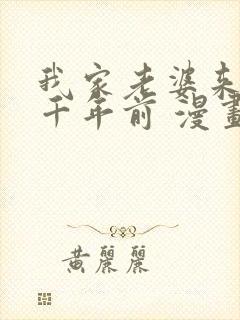 我家老婆来
千年前 漫畫
黄麗麗